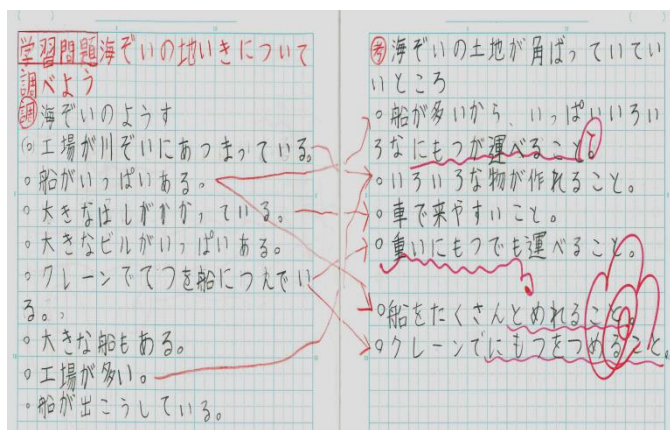 学習問題海ぞいの地いきについて
調べよう
調海ぞいのようす
工場が川ぞいにあつまっている。
船がいっぱいある。
大きなはしがかかっている。
大きなビルがいっぱいある。
クレーンでてつを船につんでい
る。
大きな船もある。
工場が多い。
船が出こうしている。
考海ぞいの土地が角ばっていてい
いところ
船が多いから、いっぱいいろい
ろなにもつが運べること。
いろいろな物が作れること。
車で来やすいこと。
重いにもつでも運べること。
船をたくさんとめれること。
クレーンでにもつをつめること。